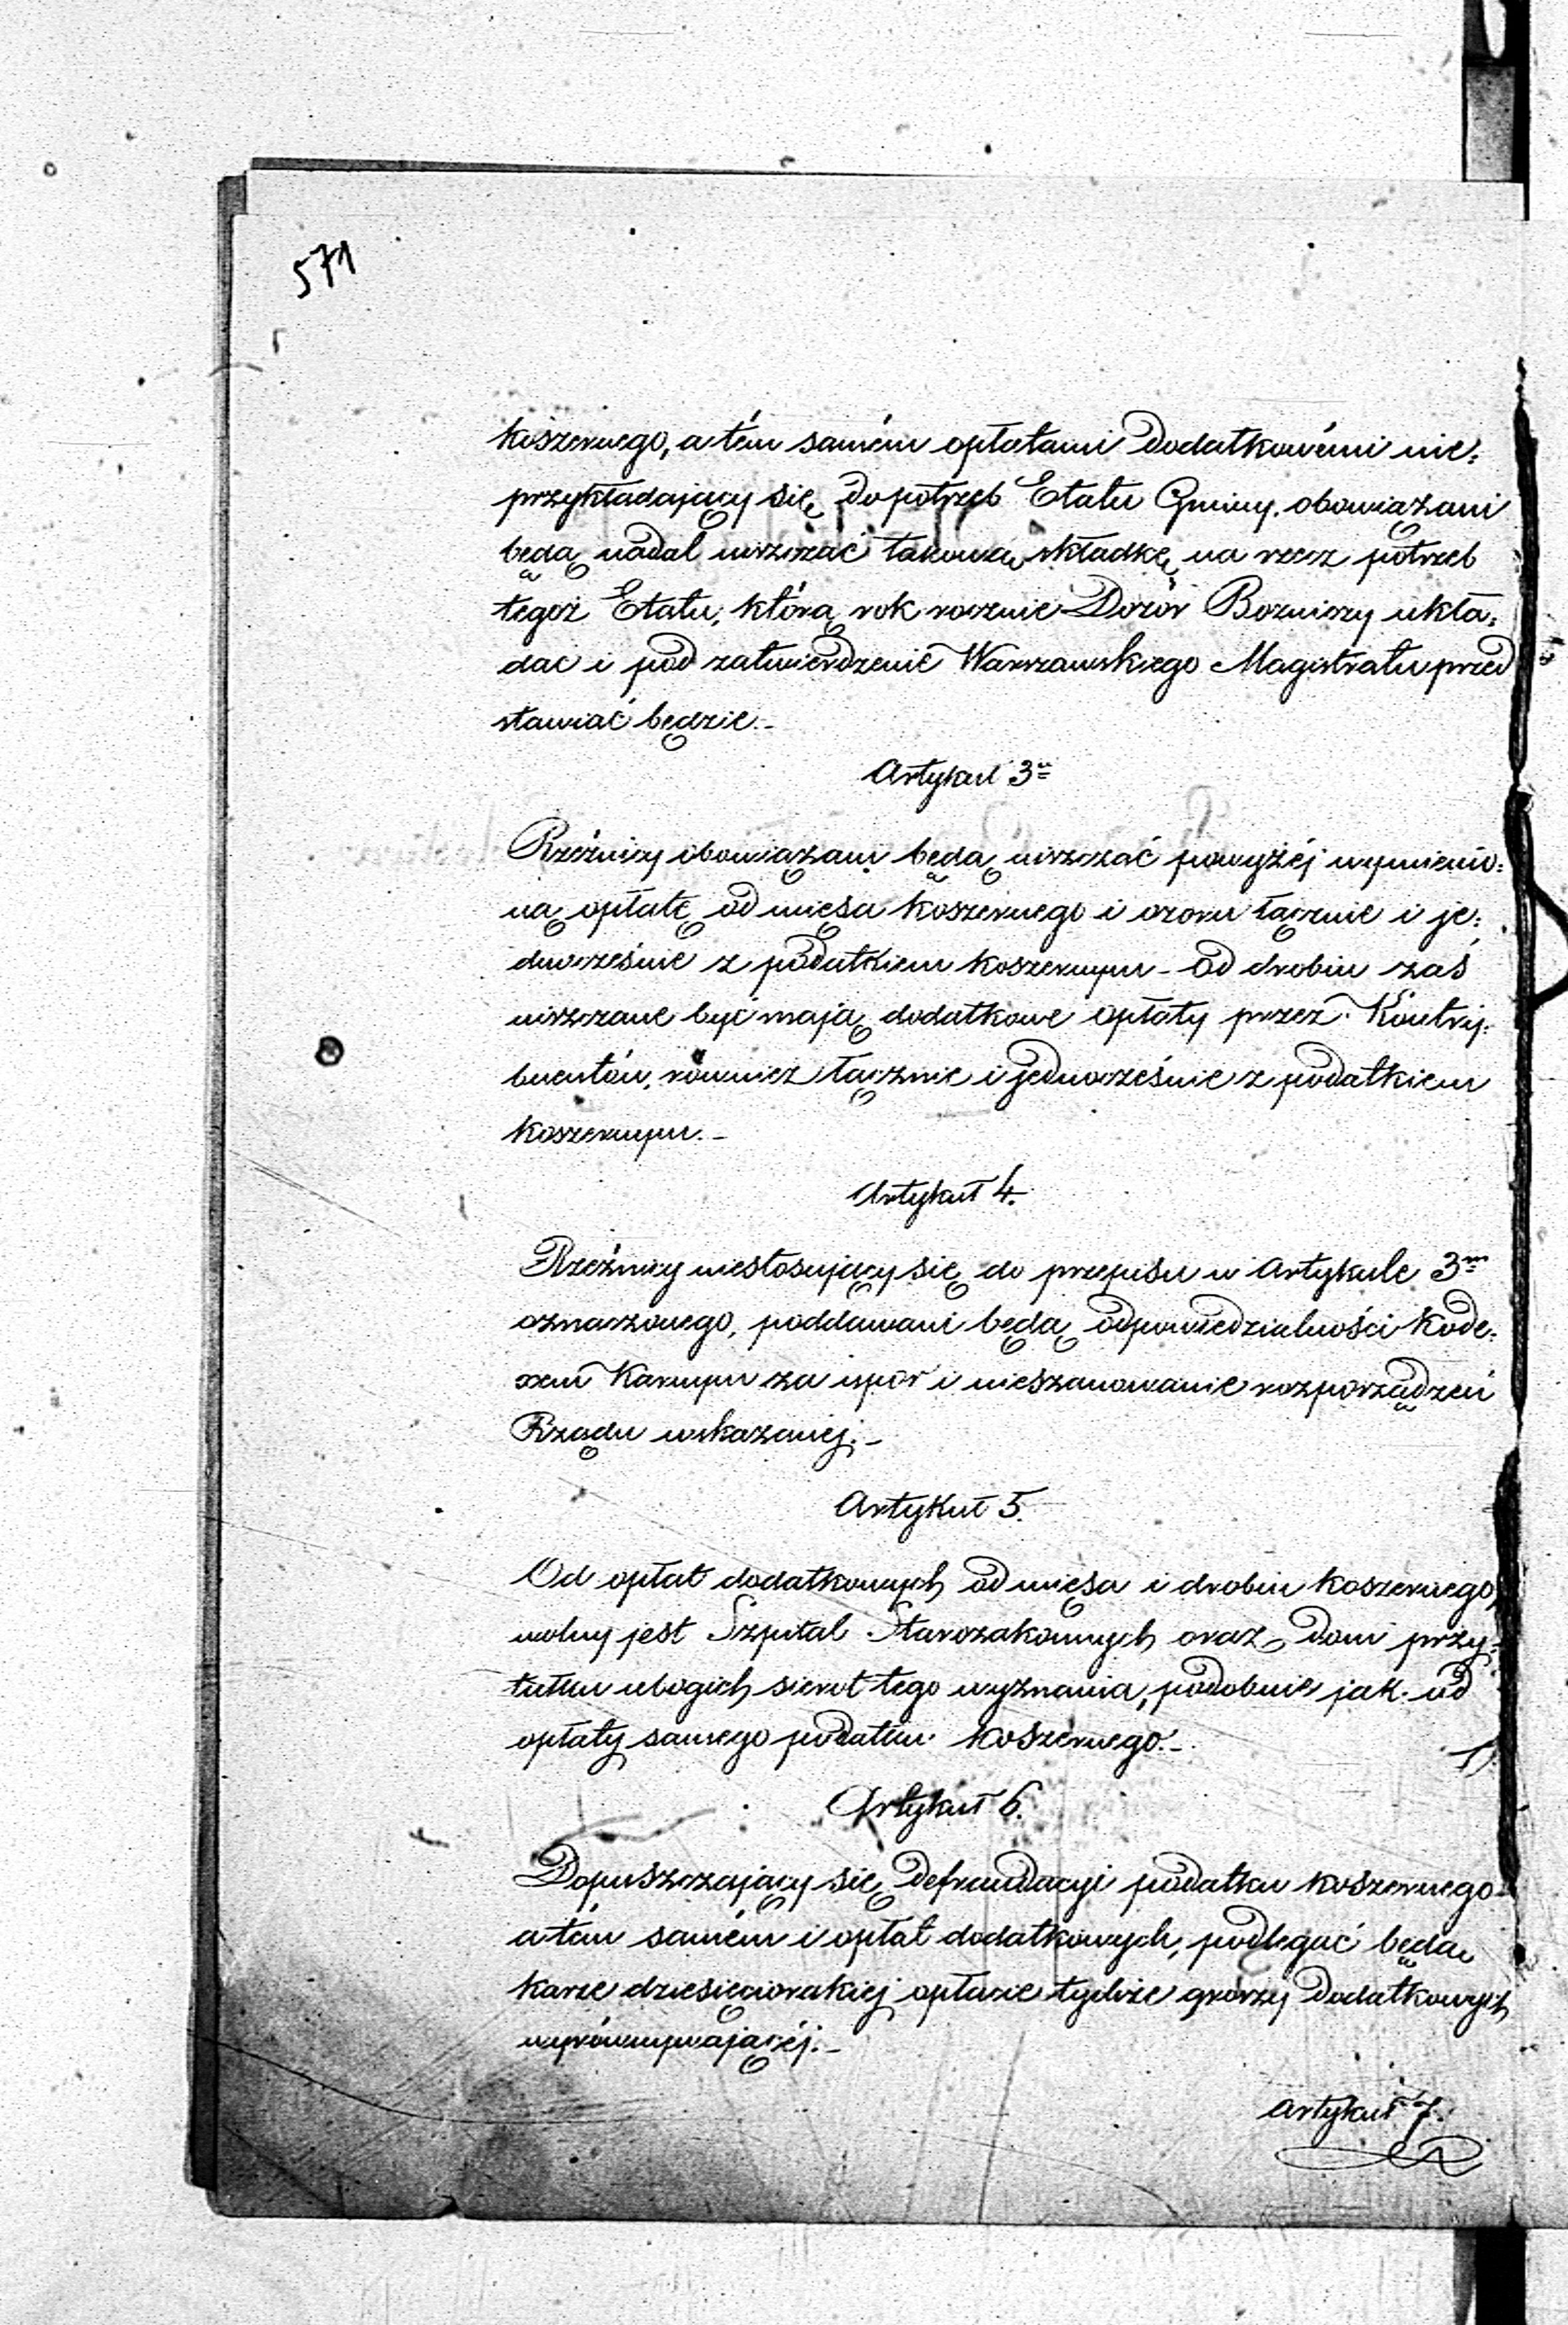 571
koszernego, a tém samém opłatami dodatkowémi nie=
przykładający się do potrzeb Etatu Gminy, obowiązani
będą nadal uiszczać takową składkę na rzecz potrzeb
tegoż Etatu, którą rok rocznie Dozór Bozniczy ukła=
dać i pod zatwierdzenie Warszawskiego Magistratu przed
stawiać będzie.-
Artykuł 3u
Rzeźnicy obowiązani będą uiszczać powyżéj wymienio=
ną opłatę od mięsa koszernego i ozoru łącznie i je=
dnocześnie z podatkiem koszernym - od drobiu zaś
uiszczane być mają dodatkowe opłaty przez Kontry=
buentów, również łącznie i jednocześnie z podatkiem
koszernym.-
Artykuł 4.
Rzeźnicy niestosujący się do przepisu w Artykule 3m
oznaczonego, poddawani będą odpowiedzialności Kode=
xem Karnym za upór i nieszanowanie rozporządzeń
Rządu wskazanéj.-
Artykuł 5.
Od opłat dodatkowych od mięsa i drobiu koszernego,
wolny jest Szpital Starozakonnych oraz dom przy=
tułku ubogich sierot tego wyznania, podobnie jak od
opłaty samego podatku koszernego.-
Artykuł 6.
Dopuszczający się defraudacyi podatku koszernego
a tém samém i opłat dodatkowych, podlegać będą
karze dziesięciorakiej opłacie tychże groszy dodatkowych
wyrównywającéj.-
Artykuł 7.